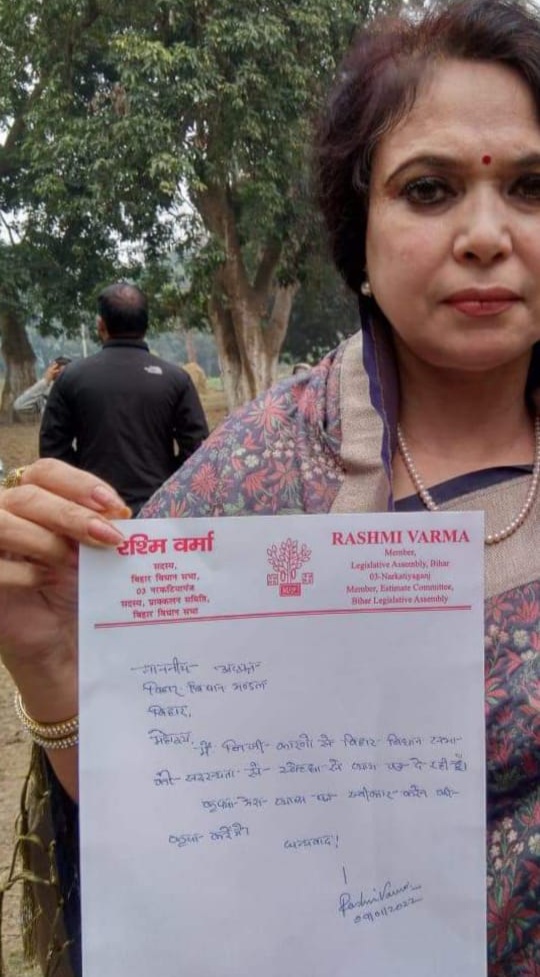 रश्मि वर्मा
सदस्य,
बिहार विधान सभा,
03 नरकटियागंज
सदस्य, प्राक्कलन समिति,
बिहार विधान सभा
RASHMI VARMA
Member,
Legislative Assembly, Bihar
03-Narkatiyaganj
Member, Estimate Committee,
Bihar Legislative Assembly
माननीय अध्यक्ष
बिहार विधान मंडल
बिहार,
महोदय,
मैं निजी कारणों से बिहार विधान सभा
की सदस्यता से स्वेच्छा से त्याग पत्र दे रही हूँ।
कृपया मेरा त्याग पत्र स्वीकार करने की
कृपा करेंगे।
धन्यवाद!
Rashmi Varma
09/01/2022